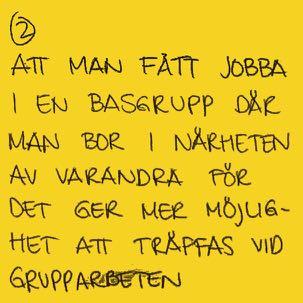 2
ATT MAN FÅTT JOBBA
I EN BASGRUPP DÄR
MAN BOR I NÄRHETEN
AV VARANDRA FÖR
DET GER MER MÖJLIG-
HET ATT TRÄFFAS VID
GRUPPARBETEN